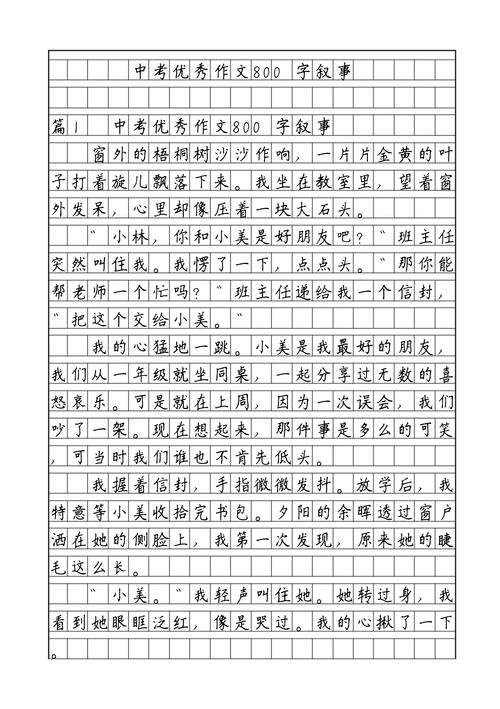 中考优秀作文800 字叙事
篇1 中考优秀作文800 字叙事
窗外的梧桐树沙沙作响，一片片金黄的叶
子打着旋儿飘落下来。我坐在教室里，望着窗
外发呆，心里却像压着一块大石头。
“小林，你和小美是好朋友吧？”班主任
突然叫住我。我愣了一下，点点头。“那你能
帮老师一个忙吗？”班主任递给我一个信封，
“把这个交给小美。”
我的心猛地一跳。小美是我最好的朋友，
我们从一年级就坐同桌，一起分享过无数的喜
怒哀乐。可是就在上周，因为一次误会，我们
吵了一架。现在想起来，那件事是多么的可笑
，可当时我们谁也不肯先低头。
我握着信封，手指微微发抖。放学后，我
特意等小美收拾完书包。夕阳的余晖透过窗户
洒在她的侧脸上，我第一次发现，原来她的睫
毛这么长。
“小美。”我轻声叫住她。她转过身，我
看到她眼眶泛红，像是哭过。我的心揪了一下
。